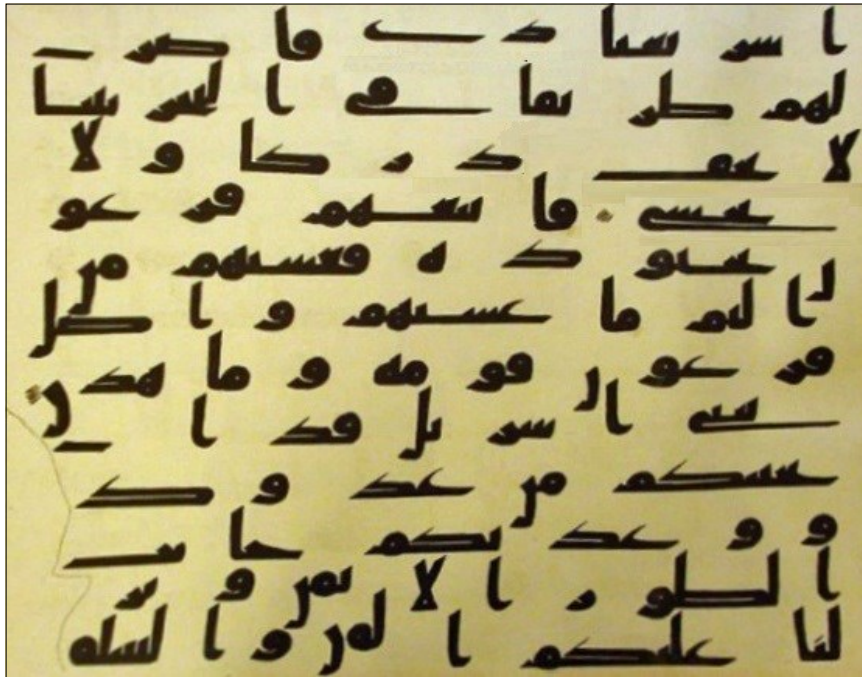 اسر بعبادي فاضرب
لهم طريقا في البحر يبسا
لا تخف دركا ولا
تخشى فاتبعهم فرعو
ن بجنوده فغشيهم من
اليم ما غشيهم واضل
فرعون قومه وما هد
ى يبني اسريل قد ا
نجينكم من عدوكم
ووعدنكم جانب
الطور الايمن ونز
لنا عليكم المن والسلو